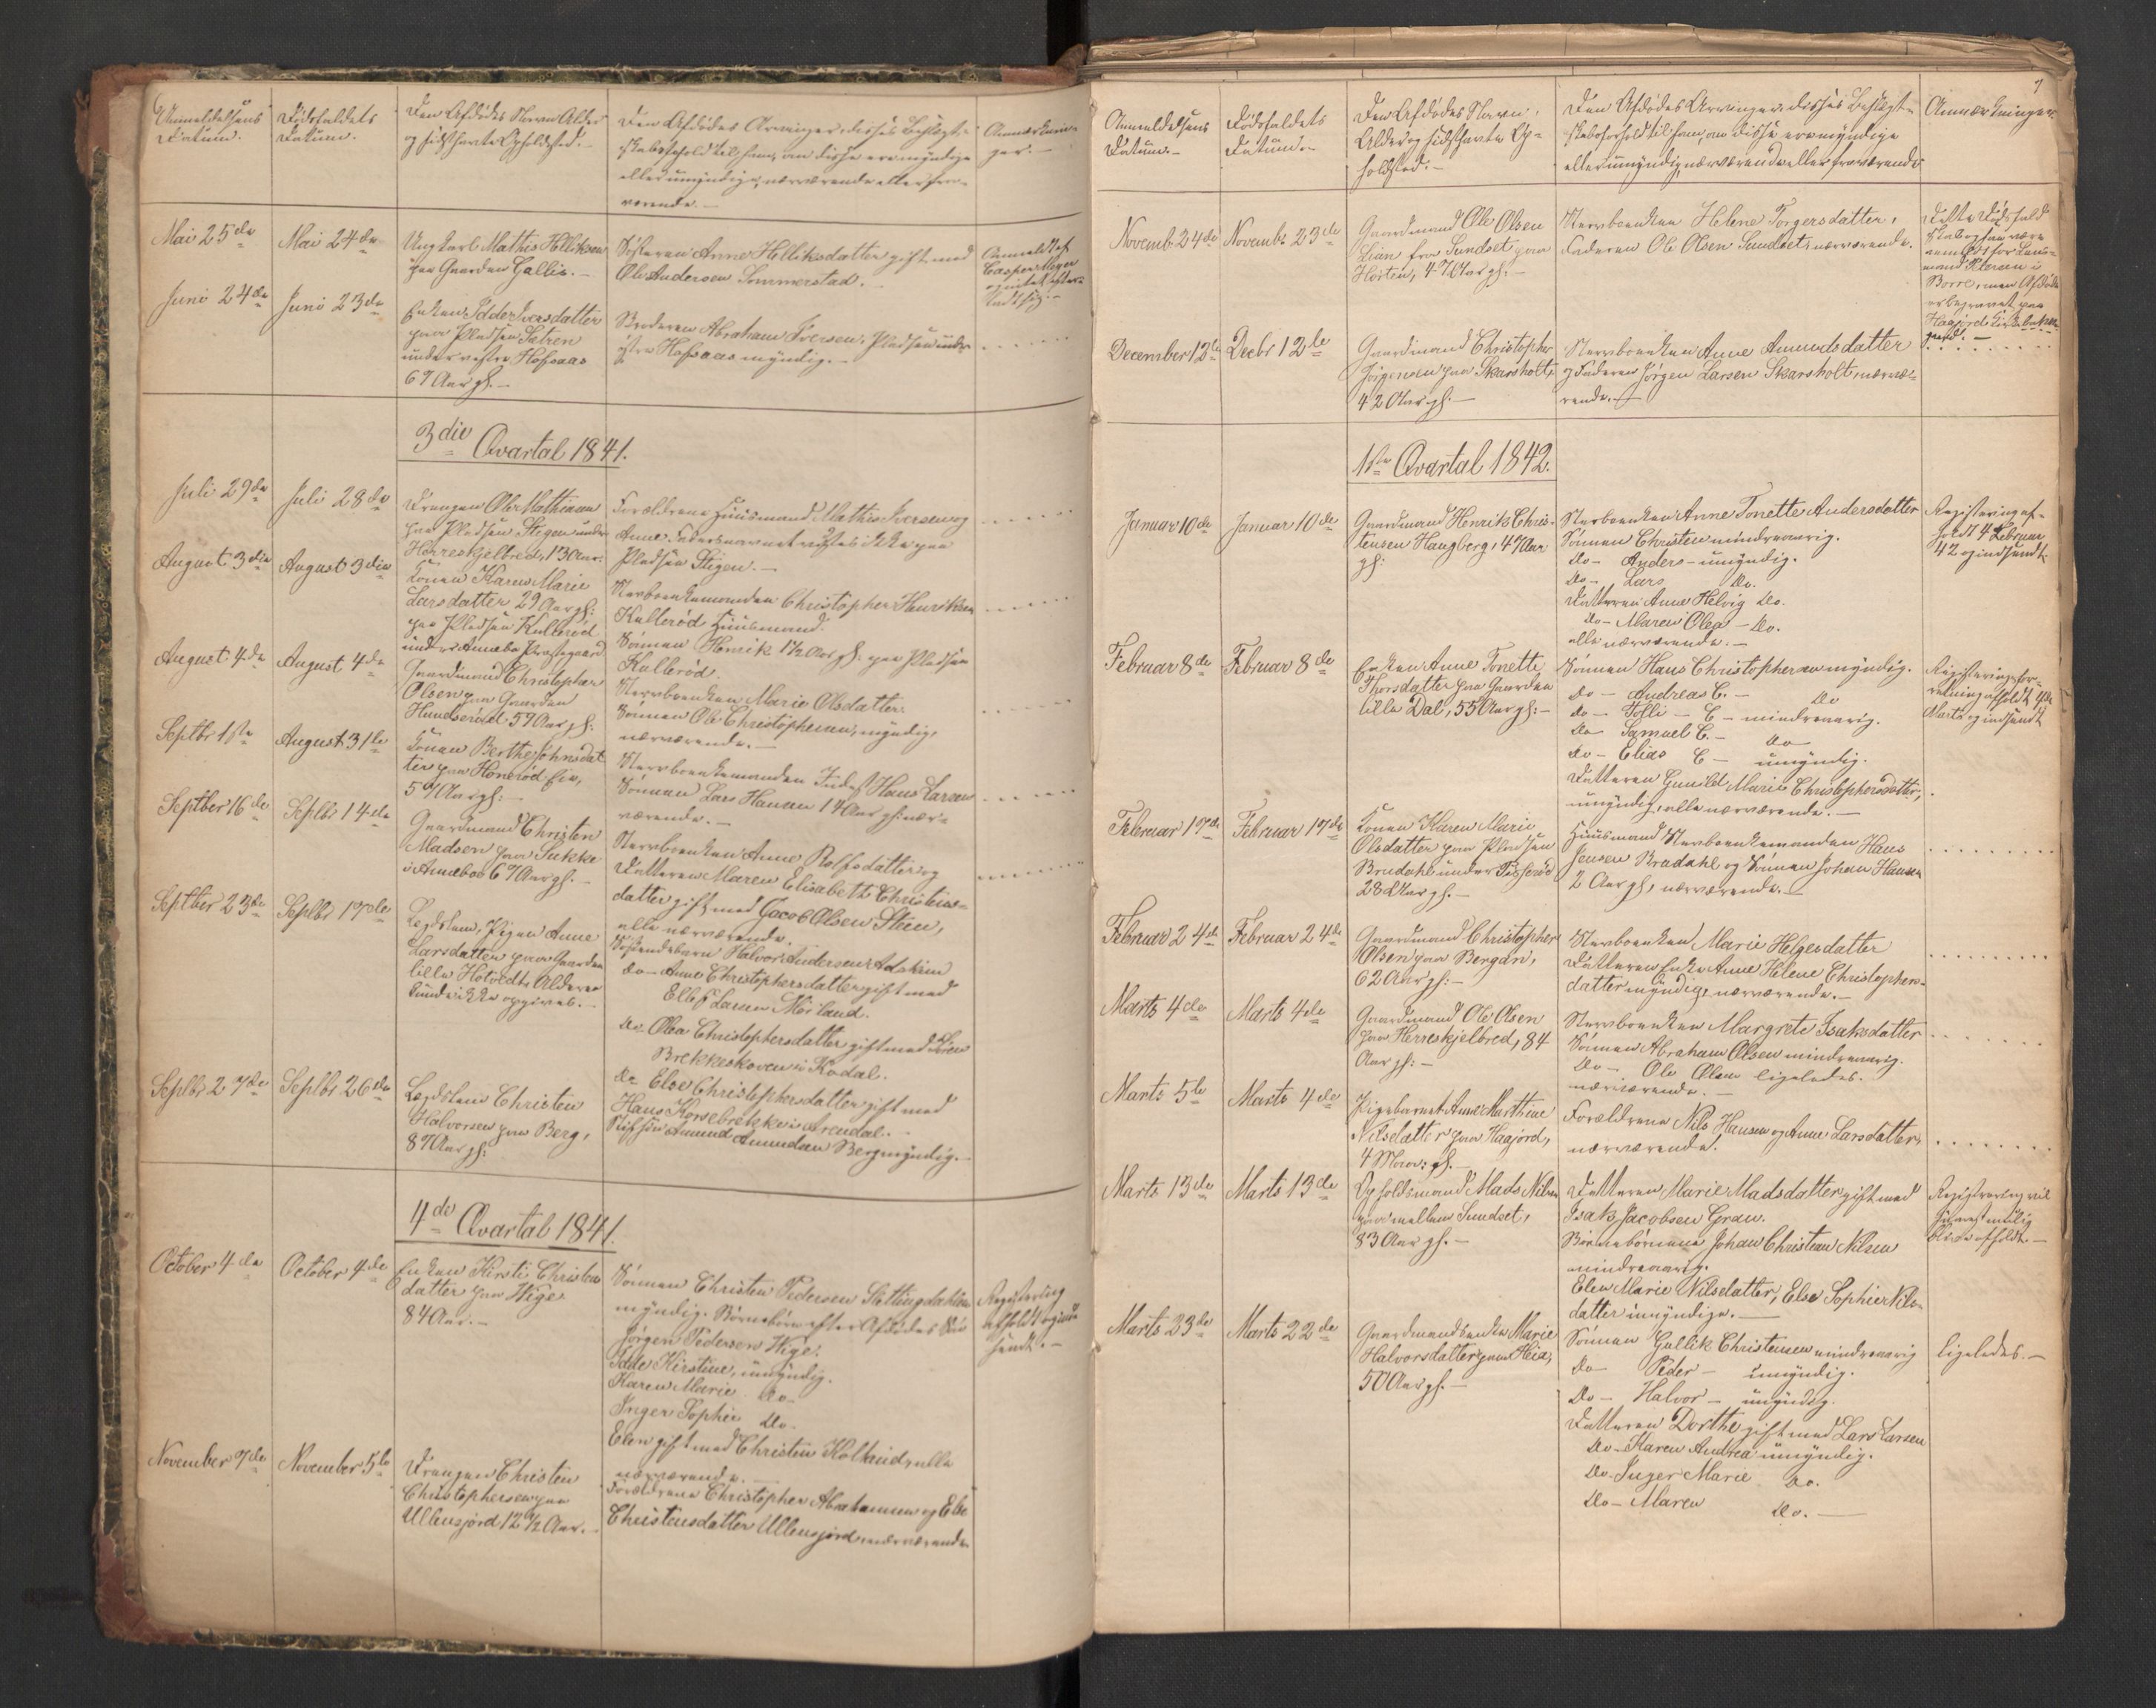 Anmeldelsens
Datum.
Dödsfaldets
Datum.
Den Afdödes Navn Alder
og sidsthavte Opholdsted.-
Den Afdödes Arvinger, disses Beslægt-
skabsforhold til ham, om disse ere myndige
eller umyndige, nærværende eller fra-
værende.-
Anmærknin-
ger.-
Mai 25de
Mai 24de
Ungkarl Mathis Helliksen
paa Gaarden Gallis.-
Sösteren Anne Helliksdatter gift med
Ole Andersen Sommerstad.-
Anmeldt af
Casper Meyer
Juni 24de
Juni 23de
Enken Idde Iversdatter
paa Pladsen Satren
under vestre Hofsaas
67 Aar gl.-
Broderen Abraham Iversen, Pladsen under
östre Hofsaas myndig.-
3die Qvartal 1841.
Juli 29de
Juli 28de
Drengen Ole Mathisen
paa Pladsen Stigen under
Herreskjelbred, 13 Aar.
Forældrene Huusmand Mathis Iversen og
Anne. Fadersnavnet vistes ikke paa
Pladsen Stigen.-
August 3die
August 3die
Konen Karen Marie
Larsdatter 29 Aar gl:
paa Pladsen Kullerød
under Andebo Præstegaard
Sterboenkemanden Christopher Henriksen
Kullerød Huusmand.
Sönnen Henrik 1½ Aar gl: paa Pladsen
Kullerød.
August 4de
August 4de
Gaardmand Christopher
Olsen paa Gaarden
Hundserød 57 Aar gl:
Sterboenken Marie Olsdatter.
Sönnen Ole Christophersen, myndig,
nærværende.-
Septbr 1ste
August 31te
Konen Berthe Johnsdat
ter paa Honerød Eie,
57 Aar gl:-
Sterboenkemanden Inds: Hans Larsen
Sönnen Lars Hansen 17 Aar gl: nær-
værende.-
Septber 16de
Septbr 14de
Gaardmand Christen
Madsen paa Sukke
i Andebo 67 Aar gl.-
Sterboenken Anne Rolfsdatter og
Datteren Maren Elisabeth Christens-
datter gift med Jacob Olsen Stein,
alle nærværende.
Septber 23de
Septbr 17de
Lægdslem, Pigen Anne
Larsdatter paa Gaarden
lille Hotvedt, Alderen
kunde ikke opgives.-
Söskendebarn Halvor Andersen Adskim
do- Anne Christophersdatter gift med
Ellef Larsen Möiland.
do- Olea Christophersdatter gift med Sören
Brekkeskoven i Kodal.
do- Else Christophersdatter gift med
Hans Korsebrekke i Arendal.-
Septbr 27de
Septbr 26de
Lægdslem Christen
Halvorsen paa Berg,
87 Aar gl:
Stifsön Amund Amundsen Berg myndig.-
4de Qvartal 1841.
October 4de
October 4de
Enken Kirsti Christens
datter paa Hige
84 Aar.-
Sönnen Christen Pedersen Slettingdahlen
myndig. Börnebörn efter Afdödes Sön
Jörgen Pedersen Hige:
Idde Kirstine, umyndig.
Karen Marie do-
Inger Sophie do-
Elen gift med Christen Holtan, alle
nærværende.-
Registering
afholdt og ind
sendt.-
November 7de
November 5te
Drengen Christen
Christophersen paa
Ullensjord 12½ Aar.-
Forældrene Christopher Abrahamsen og Else
Christensdatter Ullensjord nærværende
7
Anmeldelsens
Datum.-
Dödsfaldets
Datum.-
Den Afdödes Navn,
Alder og sidsthavte Op-
holdsted.-
Den Afdödes Arvinger, disses Beslægt-
skabsforhold til ham, om disse ere myndige
eller umyndige, nærværende eller fraværende
Anmærkninger.
Novemb: 24de
Novembr 23de
Gaardmand Ole Olsen
Lian fra Sundset paa
Horten, 47 Aar gl:-
Sterboenken Helene Torgersdatter,
Faderen Ole Olsen Sundset, nærværende.
Dette Dödsfald
skal ogsaa være
anmeldt for Lens-
mand Petersen i
Borre, men Afdöde
er begravet paa
Haajords Kirke-
gaard.-
December 12te
Decbr 12te
Gaardmand Christopher
Jörgensen paa Skarsholt,
42 Aar gl:-
Sterboenken Anne Amundsdatter
og Faderen Jörgen Larsen Skarsholt, nærvæ-
rende.-
1ste Qvartal 1842.
Januar 10de
Januar 10de
Gaardmand Henrik Chris-
tensen Haugberg, 47 Aar
gl:
Sterboenken Anne Tonette Andersdatter
Sönnen Christen mindreaarig.
do- Anders- umyndig.
do- Lars do.
Datteren Anne Helvig do.
do- Maren Olea- do.
alle nærværende.-
Registering af-
holdt 4 Februar
42 og indsendt
Februar 8de
Februar 8de
Enken Anne Tonette
Thorsdatter paa Gaarden
lille Dal, 55 Aar gl:-
Sönnen Hans Christophersen myndig.
do- Andreas C.- do
do- Tolli- C- mindreaarig.
do Samuel C.- do
do- Elias C- umyndig.
Datteren Gunild Marie Christophersdatter,
umyndig, alle nærværende.-
Registeringsfor-
retning afholdt 4de
Marts og indsendt
Februar 17de
Februar 17de
Konen Karen Marie
Olsdatter paa Pladsen
Brudahl under Fosserød
28 Aar gl.-
Huusmand Sterboenkemanden Hans
Jensen Brudahl og Sönnen Johan Hansen
2 Aar gl, nærværende.-
Februar 24de
Februar 24de
Gaardmand Christopher
Olsen paa Bergan,
62 Aar gl:-
Sterboenken Marie Helgesdatter
Datteren Enke Anne Helene Christophers-
datter myndig, nærværende.-
Marts 4de
Marts 4de
Gaardmand Ole Olsen
paa Herreskjelbred, 84
Aar gl:-
Sterboenken Margrete Isaksdatter
Sönnen Abraham Olsen mindreaarig.
do- Ole Olsen ligeledes.
nærværende.-
Marts 5te
Marts 4de
Pigebarnet Anne Marthine
Nilsdatter paa Haajord,
4 Maan: gl.-
Forældrene Nils Hansen og Anne Larsdatter,
nærværende.
Marts 13de
Marts 13de
Opholdsmand Mads Nilsen
paa mellem Sundset,
83 Aar gl.-
Datteren Marie Madsdatter gift med
Isak Jacobsen Gran.
Börnebörnene Johan Christian Nilsen
mindreaarig.
Elen Marie Nilsdatter, Else Sophie Nils-
datter umyndige.-
Registrering vil
snarest mulig
blive afholdt.-
Marts 23de
Marts 22de
Gaardmandsenke Marie
Halvorsdatter paa Heia,
50 Aar gl.-
Sönnen Gullik Christensen mindreaarig
do- Peder- umyndig.
do- Halvor- umyndig.
Datteren Dorthe gift med Lars Larsen
do- Karen Andrea umyndig.
do- Inger Marie do.
do- Maren do.-
ligeledes.-